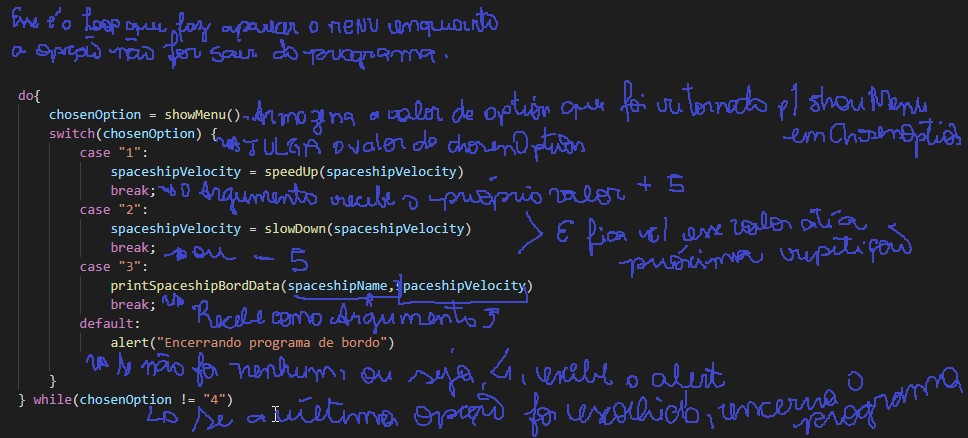 Esse é o loop que faz aparecer o menu enquanto
a opção não for sair do programa.
do{
chosenOption = showMenu() Armazena o valor de option que foi retornado p/ showMenu
em ChosenOption
switch(chosenOption) { JULGA o valor do chosenOption
case "1":
spaceshipVelocity = speedUp(spaceshipVelocity)
break; o Argumento recebe o próprio valor + 5
case "2":
spaceshipVelocity = slowDown(spaceshipVelocity)
E fica esse valor até a
próxima repetição
break; ou - 5
case "3":
printSpaceshipBordData(spaceshipName, spaceshipVelocity)
break; Recebe como Argumento
default:
alert("Encerrando programa de bordo")
Se não for nenhum, ou seja, 4, exibe o alert
}
} while(chosenOption != "4")
Se a última opção for escolhida, encerra o programa